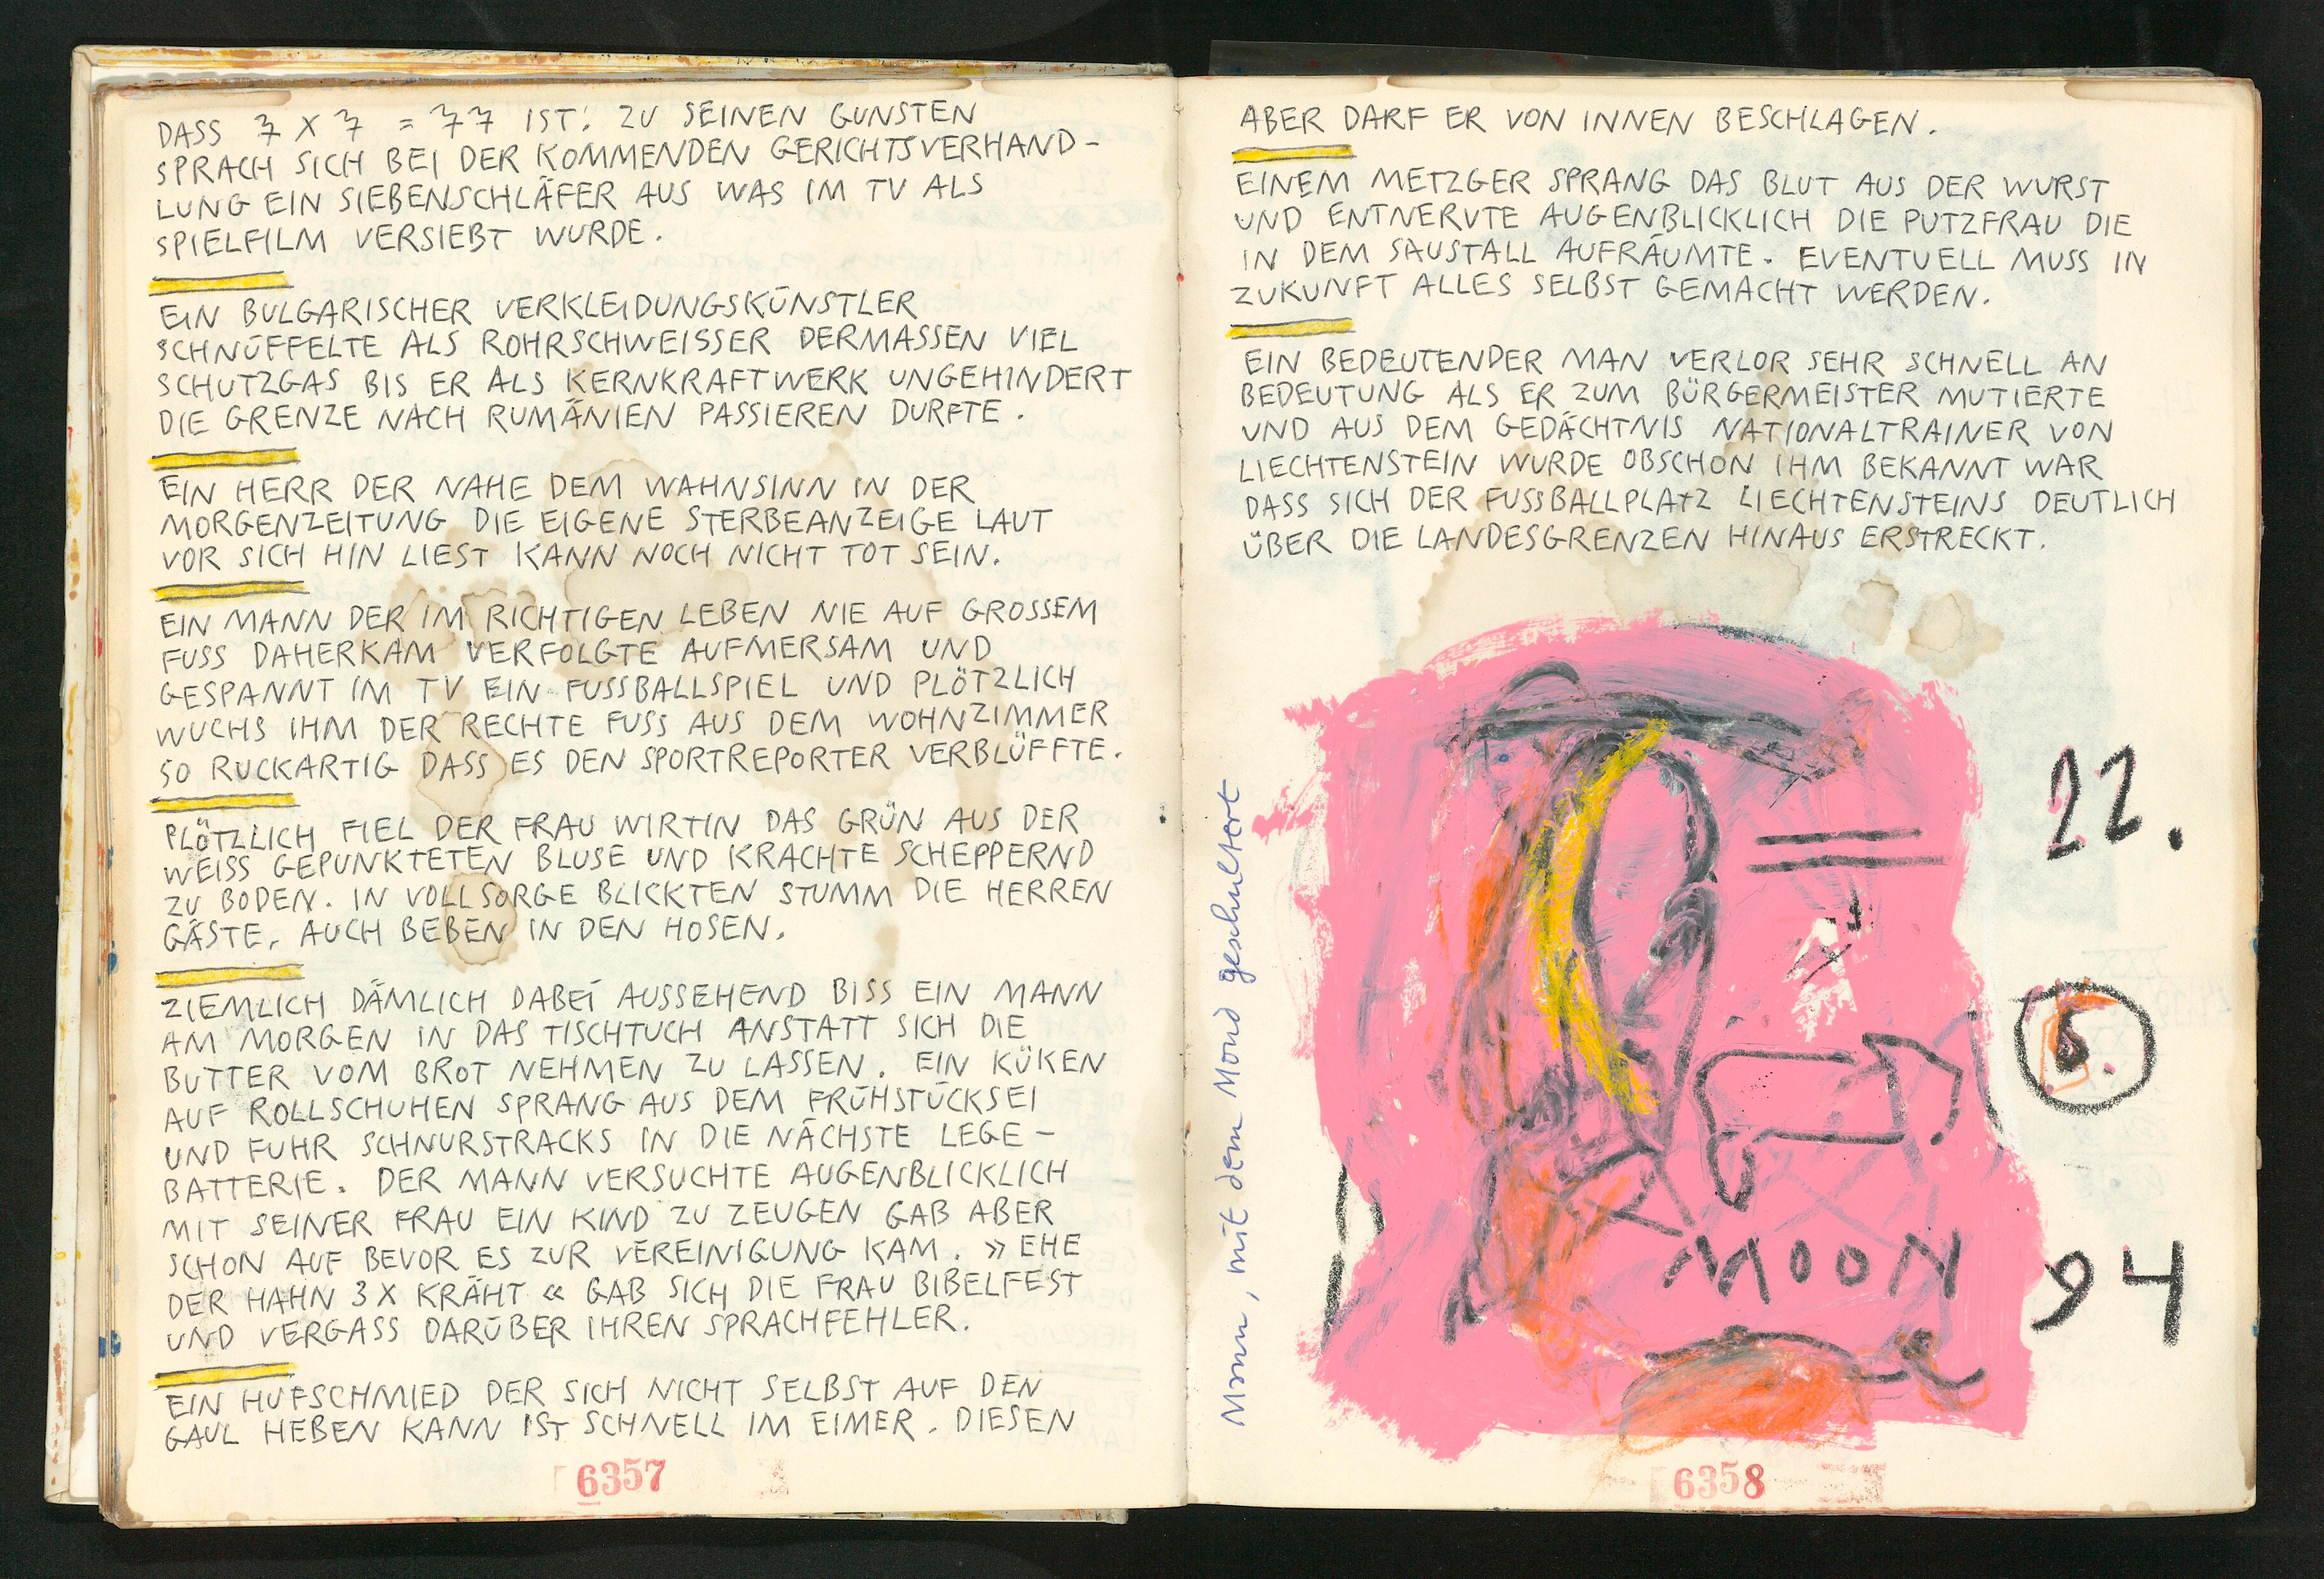 DASS 7 X 7 = 77 IST! ZU SEINEN GUNSTEN
SPRACH SICH BEI DER KOMMENDEN GERICHTSVERHAND-
LUNG EIN SIEBENSCHLÄFER AUS WAS IM TV ALS
SPIELFILM VERSIEBT WURDE.
EIN BULGARISCHER VERKLEIDUNGSKÜNSTLER
SCHNÜFFELTE ALS ROHRSCHWEISSER DERMASSEN VIEL
SCHUTZGAS BIS ER ALS KERNKRAFTWERK UNGEHINDERT
DIE GRENZE NACH RUMÄNIEN PASSIEREN DURFTE.
EIN HERR DER NAHE DEM WAHNSINN IN DER
MORGENZEITUNG DIE EIGENE STERBEANZEIGE LAUT
VOR SICH HIN LIEST KANN NOCH NICHT TOT SEIN.
EIN MANN DER IM RICHTIGEN LEBEN NIE AUF GROSSEM
FUSS DAHERKAM VERFOLGTE AUFMERSAM UND
GESPANNT IM TV EIN FUSSBALLSPIEL UND PLÖTZLICH
WUCHS IHM DER RECHTE FUSS AUS DEM WOHNZIMMER
SO RUCKARTIG DASS ES DEN SPORTREPORTER VERBLÜFFTE.
PLÖTZLICH FIEL DER FRAU WIRTIN DAS GRÜN AUS DER
WEISS GEPUNKTETEN BLUSE UND KRACHTE SCHEPPERND
ZU BODEN. IN VOLLSORGE BLICKTEN STUMM DIE HERREN
GÄSTE, AUCH BEBEN IN DEN HOSEN.
ZIEMLICH DÄMLICH DABEI AUSSEHEND BISS EIN MANN
AM MORGEN IN DAS TISCHTUCH ANSTATT SICH DIE
BUTTER VOM BROT NEHMEN ZU LASSEN. EIN KÜKEN
AUF ROLLSCHUHEN SPRANG AUS DEM FRÜHSTÜCKSEI
UND FUHR SCHNURSTRACKS IN DIE NÄCHSTE LEGE-
BATTERIE. DER MANN VERSUCHTE AUGENBLICKLICH
MIT SEINER FRAU EIN KIND ZU ZEUGEN GAB ABER
SCHON AUF BEVOR ES ZUR VEREINIGUNG KAM. » EHE
DER HAHN 3 X KRÄHT « GAB SICH DIE FRAU BIBELFEST
UND VERGASS DARÜBER IHREN SPRACHFEHLER.
EIN HUFSCHMIED DER SICH NICHT SELBST AUF DEN
GAUL HEBEN KANN IST SCHNELL IM EIMER. DIESEN
6357
ABER DARF ER VON INNEN BESCHLAGEN.
EINEM METZGER SPRANG DAS BLUT AUS DER WURST
UND ENTNERVTE AUGENBLICKLICH DIE PUTZFRAU DIE
IN DEM SAUSTALL AUFRÄUMTE. EVENTUELL MUSS IN
ZUKUNFT ALLES SELBST GEMACHT WERDEN.
EIN BEDEUTENDER MAN VERLOR SEHR SCHNELL AN
BEDEUTUNG ALS ER ZUM BÜRGERMEISTER MUTIERTE
UND AUS DEM GEDÄCHTNIS NATIONALTRAINER VON
LIECHTENSTEIN WURDE OBSCHON IHM BEKANNT WAR
DASS SICH DER FUSSBALLPLATZ LIECHTENSTEINS DEUTLICH
ÜBER DIE LANDESGRENZEN HINAUS ERSTRECKT.
Mann, mit dem Mond geschultert
22.
6.
MOON
94
6358